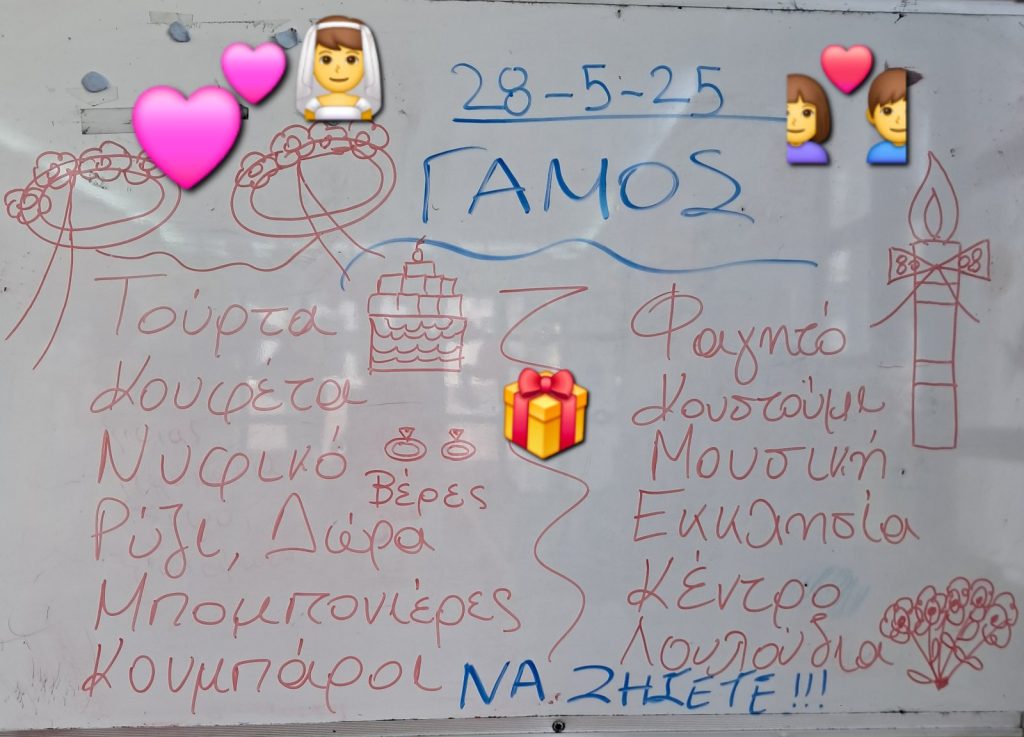 28-5-25
ΓΑΜΟΣ
Τούρτα
Κουφέτα
Νυφικό
Βέρες
Ρύζι, Δώρα
Μπομπονιέρες
Κουμπάροι
Φαγητό
Κουστούμι
Μουσική
Εκκλησία
Κέντρο
Λουλούδια
ΝΑ ΖΗΣΕΤΕ!!!